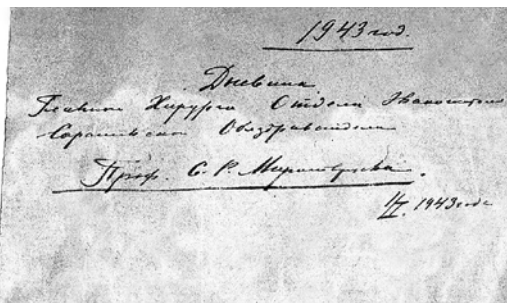 1943 год.
Дневник
Главного Хирурга Отдела Эвакогоспит.
Саратовского Облздравотдела
Проф. С. Р. Миротворцева.
1943 года